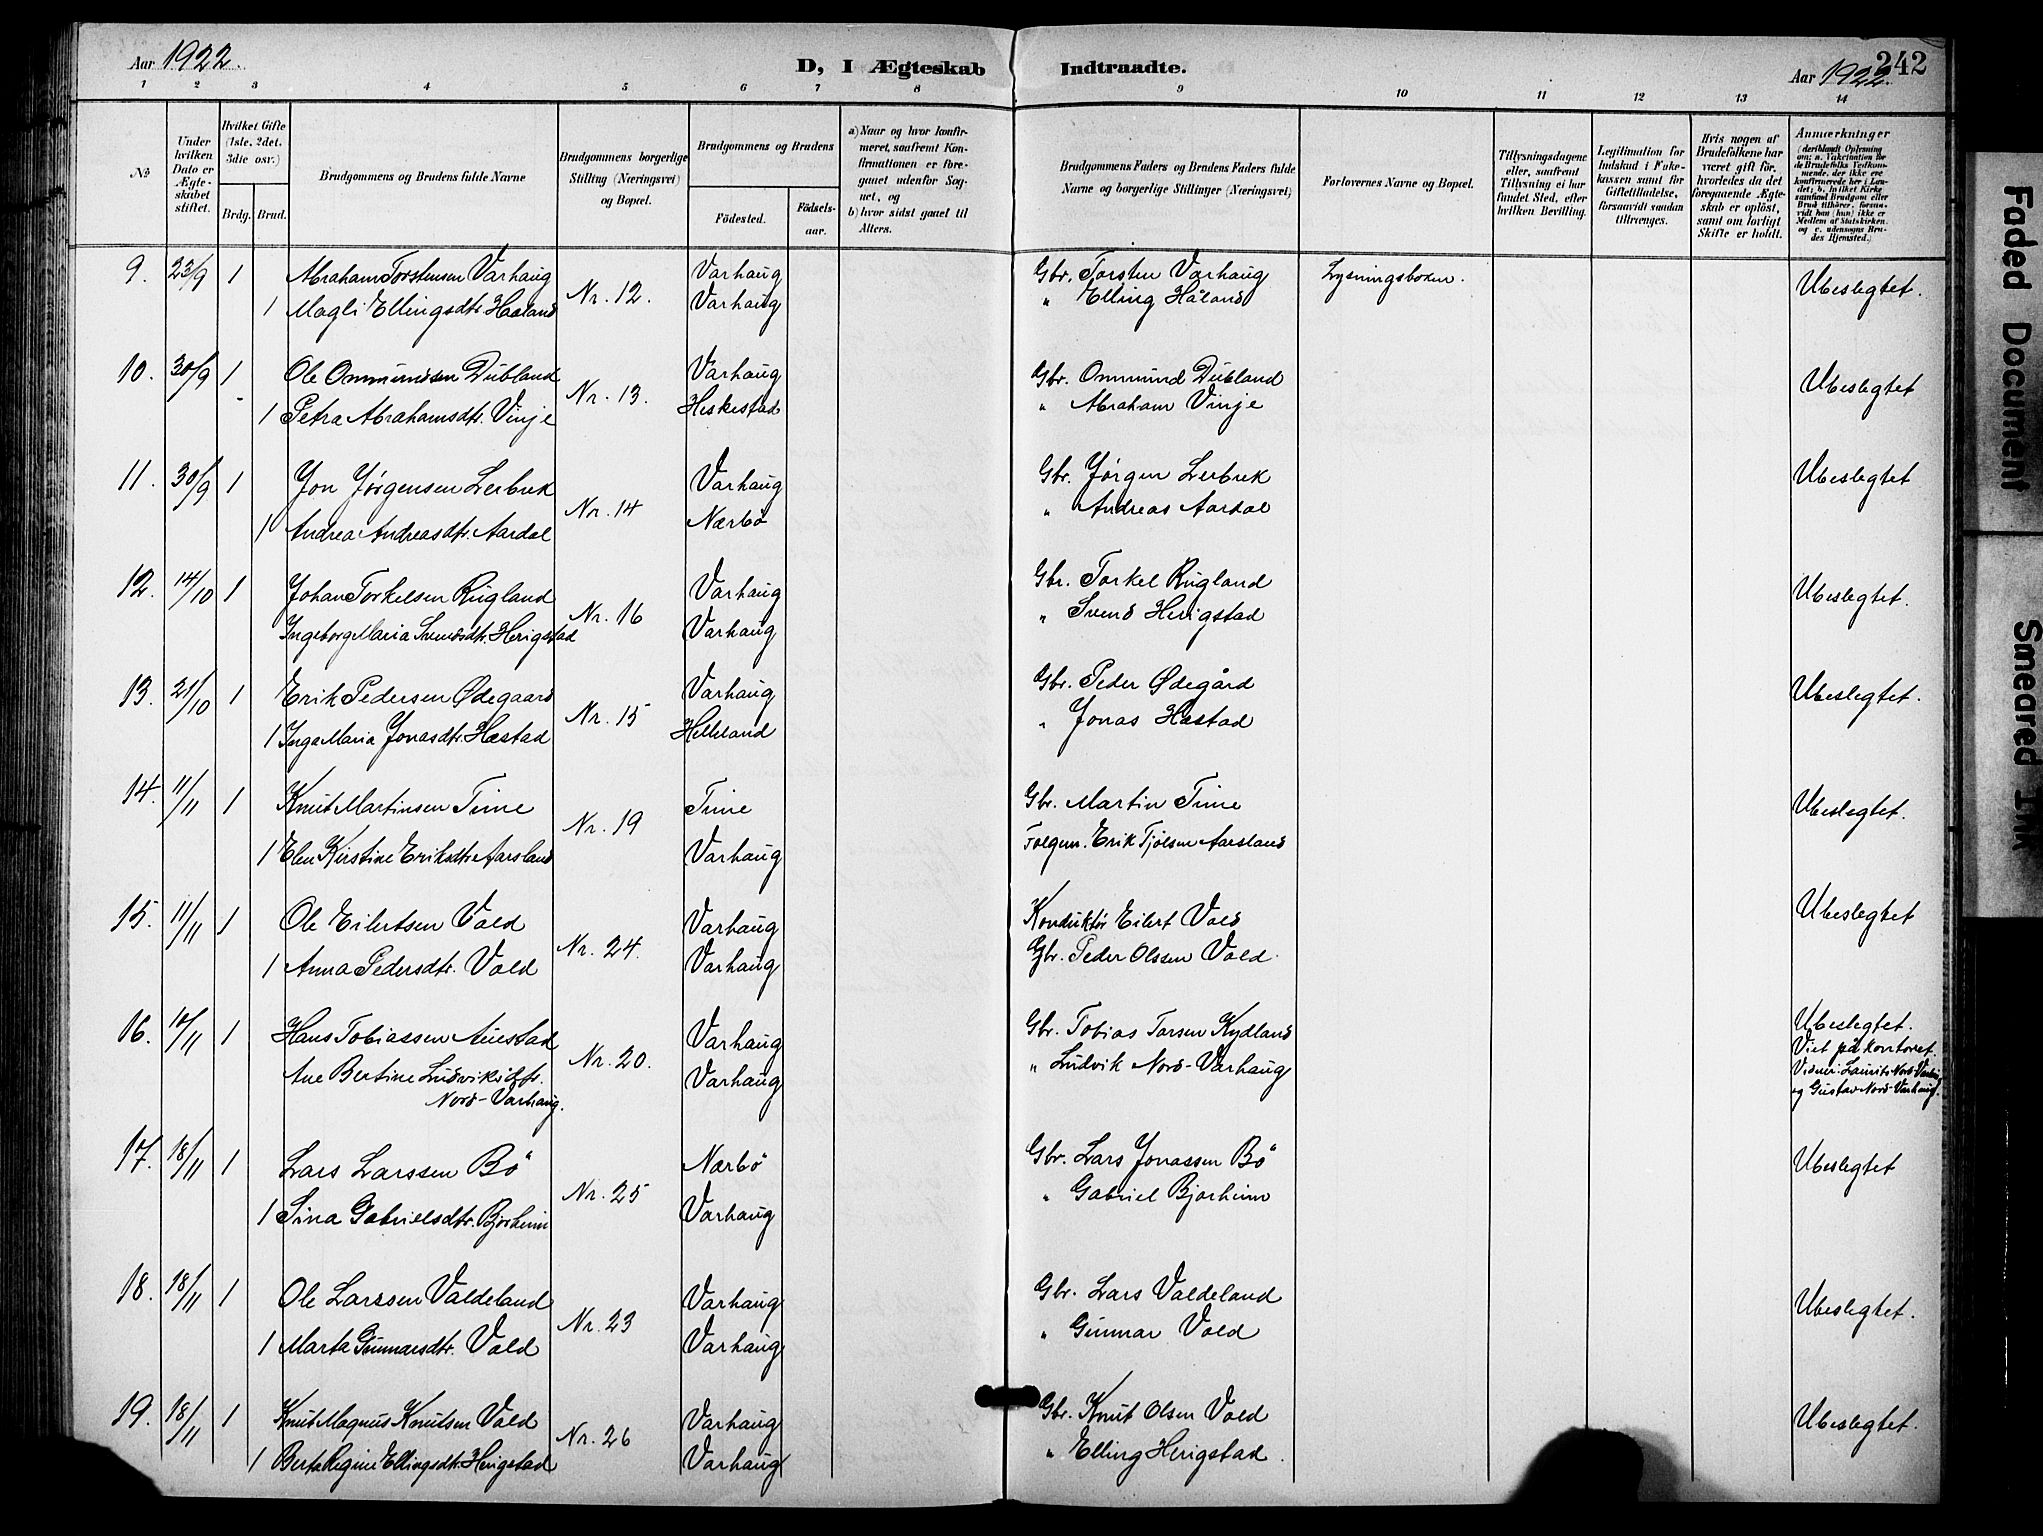 Aar 1922.
D, I Ægteskab Indtraadte.
Aar 1922.
242
1 2 3 4 5 6 7 8 9 10 11 12 13 14
№
Under hvilken Dato er Ægteskabet stiftet.
Hvilket Gifte (1ste, 2det, 3die osv.)
Brdg. Brud.
Brudgommens og Brudens fulde Navne
Brudgommens borgerlige Stilling (Næringsvei) og Bopæl.
Brudgommens og Brudens
Födested.
Födselsaar.
a) Naar og hvor konfirmeret, saafremt Konfirmationen er foregaaet udenfor Sognet, og
b) hvor sidst gaaet til Alters.
Brudgommens Faders og Brudens Faders fulde Navne og borgerlige Stillinger (Næringsvei)
Forlovernes Navne og Bopæl.
Tillysningsdagene eller, saafremt Tillysning ei har fundet Sted, efter hvilken Bevilling.
Legitimation for Indskud i Fukekassen samt for Giftetilladelse, forsaavidt saadan tiltrænges.
Hvis nogen af Brudefolkene har været gift för, hvorledes da det foregaaende Ægteskab er oplöst, samt om lovligt Skifte er holdt.
Anmærkninger
9. 23/9 1 Abraham Torstensen Varhaug Nr. 12. Varhaug Gbr. Torsten Varhaug Lysningsboken. Ubeslegtet.
1 Magli Ellingsdtr. Haaland Varhaug " Elling Håland
10. 30/9 1 Ole Ommundsen Dubland Nr. 13. Varhaug Gbr. Ommund Dubland Ubeslegtet
1 Petra Abrahamsdtr. Vinje Heskestad " Abraham Vinje
11. 30/9 1 Jon Jørgensen Lerbrek Nr. 14 Varhaug Gbr. Jørgen Lerbrek Ubeslegtet
1 Andrea Andreasdtr. Aardal Nærbö " Andreas Aardal
12. 14/10 1 Johan Torkelsen Rugland Nr. 16 Varhaug Gbr. Torkel Rugland Ubeslegtet.
Ingeborg Maria Svendsdtr. Herigstad Varhaug " Svend Herigstad
13. 21/10 1 Erik Pedersen Ødegaard Nr. 15 Varhaug Gbr. Peder Ødegård Ubeslegtet.
1 Inga Maria Jonasdtr. Hæstad Helleland " Jonas Hæstad
14. 11/11 1 Knut Martinsen Time Nr. 19 Time Gbr. Martin Time Ubeslegtet.
1 Elen Kirstine Eriksdtr. Aarsland Varhaug Folgem. Erik Tjølsen Aarsland
15. 11/11 1 Ole Eilertsen Vold Nr. 24. Varhaug Konduktør Eilert Vold Ubeslegtet
1 Anna Pedersdtr. Vold Varhaug Gbr. Peder Olssen Vold.
16. 14/11 1 Hans Tobiassen Auestad Nr. 20. Varhaug Gbr. Tobias Torsen Kydland Ubeslegtet.
Ane Bertine Ludviksdtr. Varhaug " Ludvik Nord-Varhaug Viet på kontoret.
Nord-Varhaug. Vidner: Laurits Nord-Varhaug
og Gustav Nord-Varhaug.
17. 18/11 1 Lars Larssen Bö Nr. 25 Nærbö Gbr. Lars Jonassen Bö Ubeslegtet
1 Sina Gabrielsdtr. Bjorheim Varhaug " Gabriel Bjorheim
18. 18/11 1 Ole Larssen Valdeland Nr. 23 Varhaug Gbr. Lars Valdeland Ubeslegtet.
1 Marta Gunnarsdtr. Vold Varhaug " Gunnar Vold
19. 18/11 1 Knut Magnus Knutsen Vold Nr. 26 Varhaug Gbr. Knut Olsen Vold Ubeslegtet.
1 Berta Regine Ellingsdtr. Herigstad Varhaug " Elling Herigstad.
Faded Document
Smeared Ink